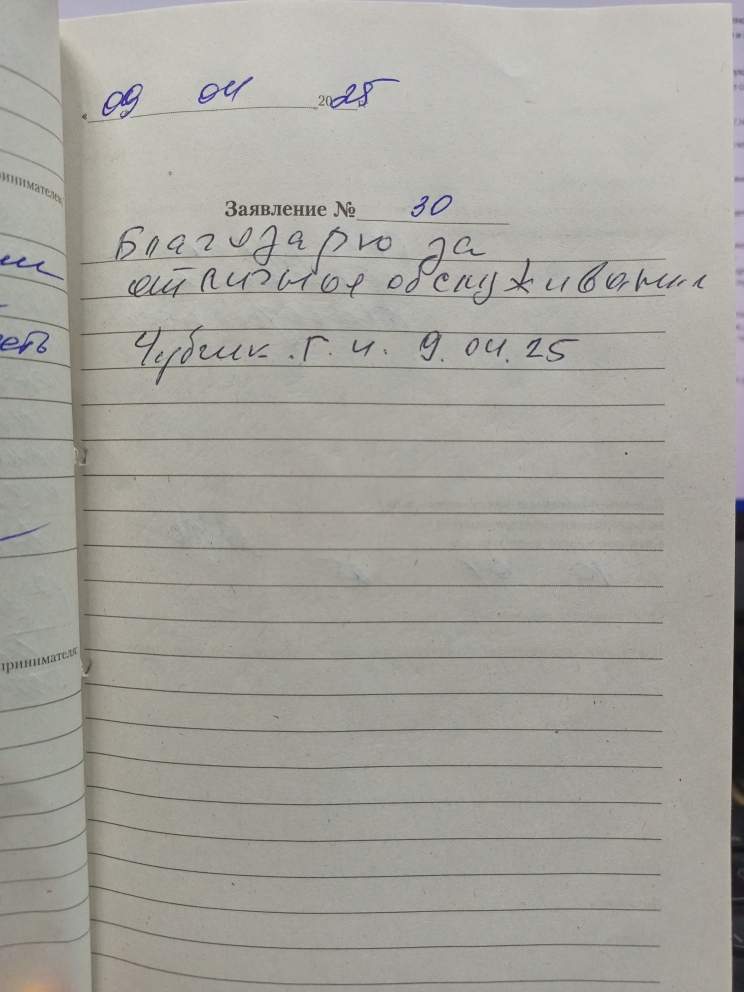 « 09 04 2025
Заявление № 30
Благодарю за
отличное обслуживание
Чубик .Г. И. 9. 04. 25
принимателя
еть
принимателя